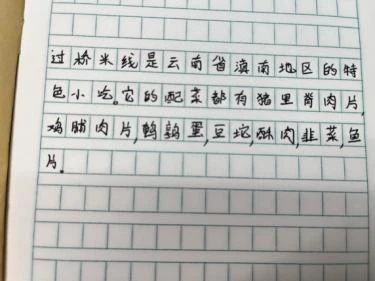 过桥米线是云南省滇南地区的特
色小吃。它的配菜都有猪里脊肉片,
鸡脯肉片,鹌鹑蛋,豆坨,酥肉,韭菜,鱼
片。